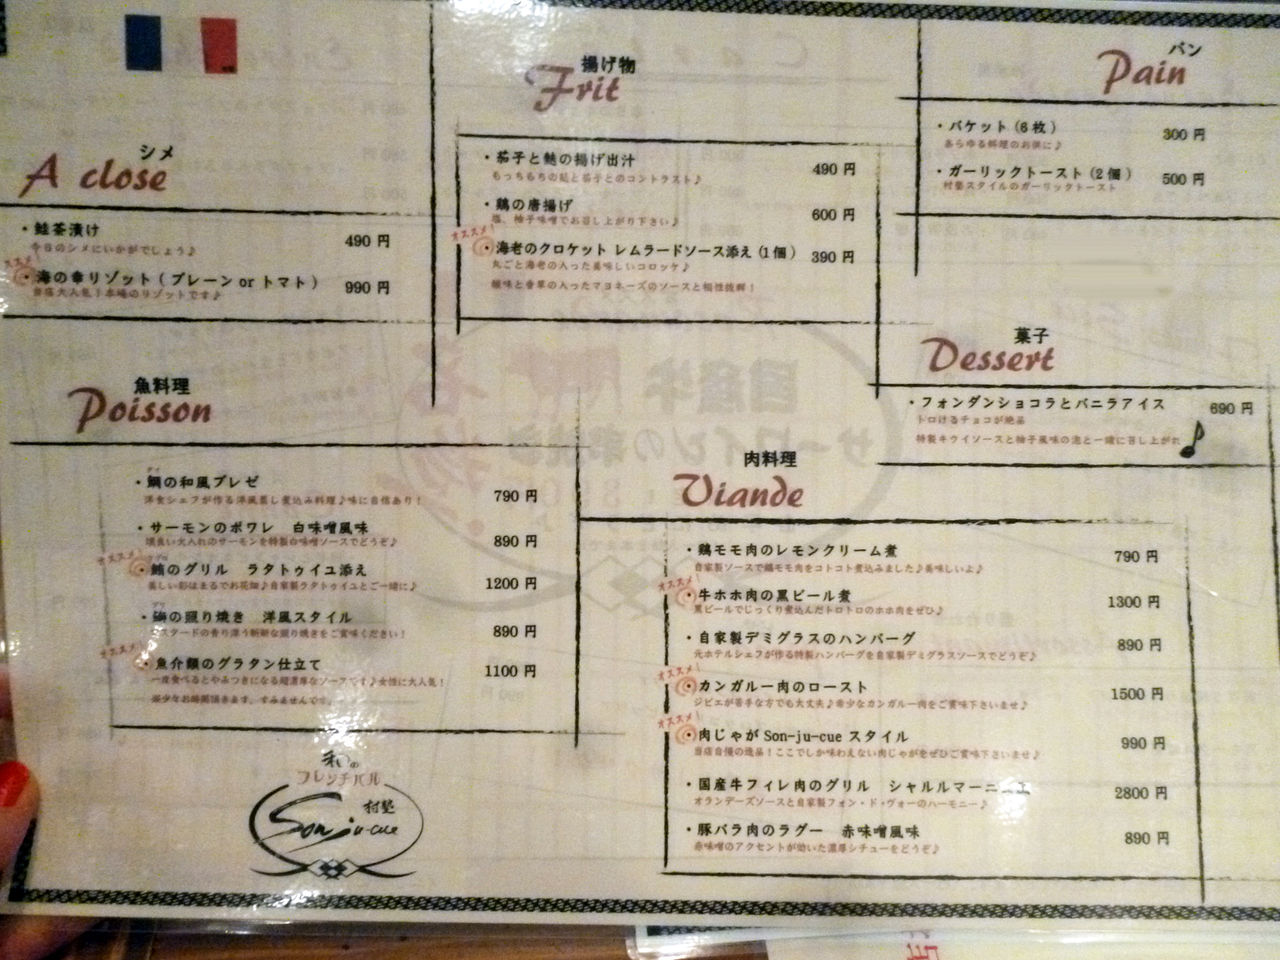 シメ
A close
・鮭茶漬け 490 円
今日のシメにいかがでしょう♪
オススメ!
・海の幸リゾット ( プレーン or トマト ) 990 円
当店大人気!本場のリゾットです♪
揚げ物
Frit
・茄子と麩の揚げ出汁 490 円
もっちもちの麩と茄子とのコントラスト♪
・鶏の唐揚げ 600 円
塩、柚子味噌でお召し上がり下さい♪
オススメ!
・海老のクロケット レムラードソース添え (1個) 390 円
丸ごと海老の入った美味しいコロッケ♪
酸味と香草の入ったマヨネーズのソースと相性抜群!
パン
Pain
・バケット (6 枚) 300 円
あらゆる料理のお供に♪
・ガーリックトースト (2 個) 500 円
村塾スタイルのガーリックトースト
菓子
Dessert
・フォンダンショコラとバニラアイス 690 円
トロけるチョコが絶品
特製キウイソースと柚子風味の泡と一緒に召し上がれ
魚料理
Poisson
・鯛の和風ブレゼ 790 円
洋食シェフが作る洋風蒸し煮込み料理♪味に自信あり!
・サーモンのポワレ 白味噌風味 890 円
頃良い大入れのサーモンを特製白味噌ソースでどうぞ♪
オススメ!
のグリル ラタトゥイユ添え 1200 円
美しい彩はまるでお花畑♪自家製ラタトゥイユとご一緒に♪
の照り焼き 洋風スタイル 890 円
マスタードの香り漂う斬新な照り焼きをご賞味ください!
オススメ!
・魚介類のグラタン仕立て 1100 円
一度食べるとやみつきになる超濃厚なソースです♪女性に大人気!
※少々お時間頂きます。すみませんです。
肉料理
Viande
・鶏モモ肉のレモンクリーム煮 790 円
自家製ソースで鶏モモ肉をコトコト煮込みました♪美味しいよ♪
オススメ!
・牛ホホ肉の黒ビール煮 1300 円
黒ビールでじっくり煮込んだトロトロのホホ肉をぜひ♪
・自家製デミグラスのハンバーグ 890 円
元ホテルシェフが作る特製ハンバーグを自家製デミグラスソースでどうぞ♪
オススメ!
・カンガルー肉のロースト 1500 円
ジビエが苦手な方でも大丈夫♪希少なカンガルー肉をご賞味下さいませ♪
オススメ!
・肉じゃが Son-ju-cue スタイル 990 円
当店自慢の逸品!ここでしか味わえない肉じゃがをぜひご賞味下さいませ♪
・国産牛フィレ肉のグリル シャルルマーニュ 2800 円
オランデーズソースと自家製フォン・ド・ヴォーのハーモニー♪
・豚バラ肉のラグー 赤味噌風味 890 円
赤味噌のアクセントが効いた濃厚シチューをどうぞ♪
和の
フレンチバル
村塾
Son-ju-cue